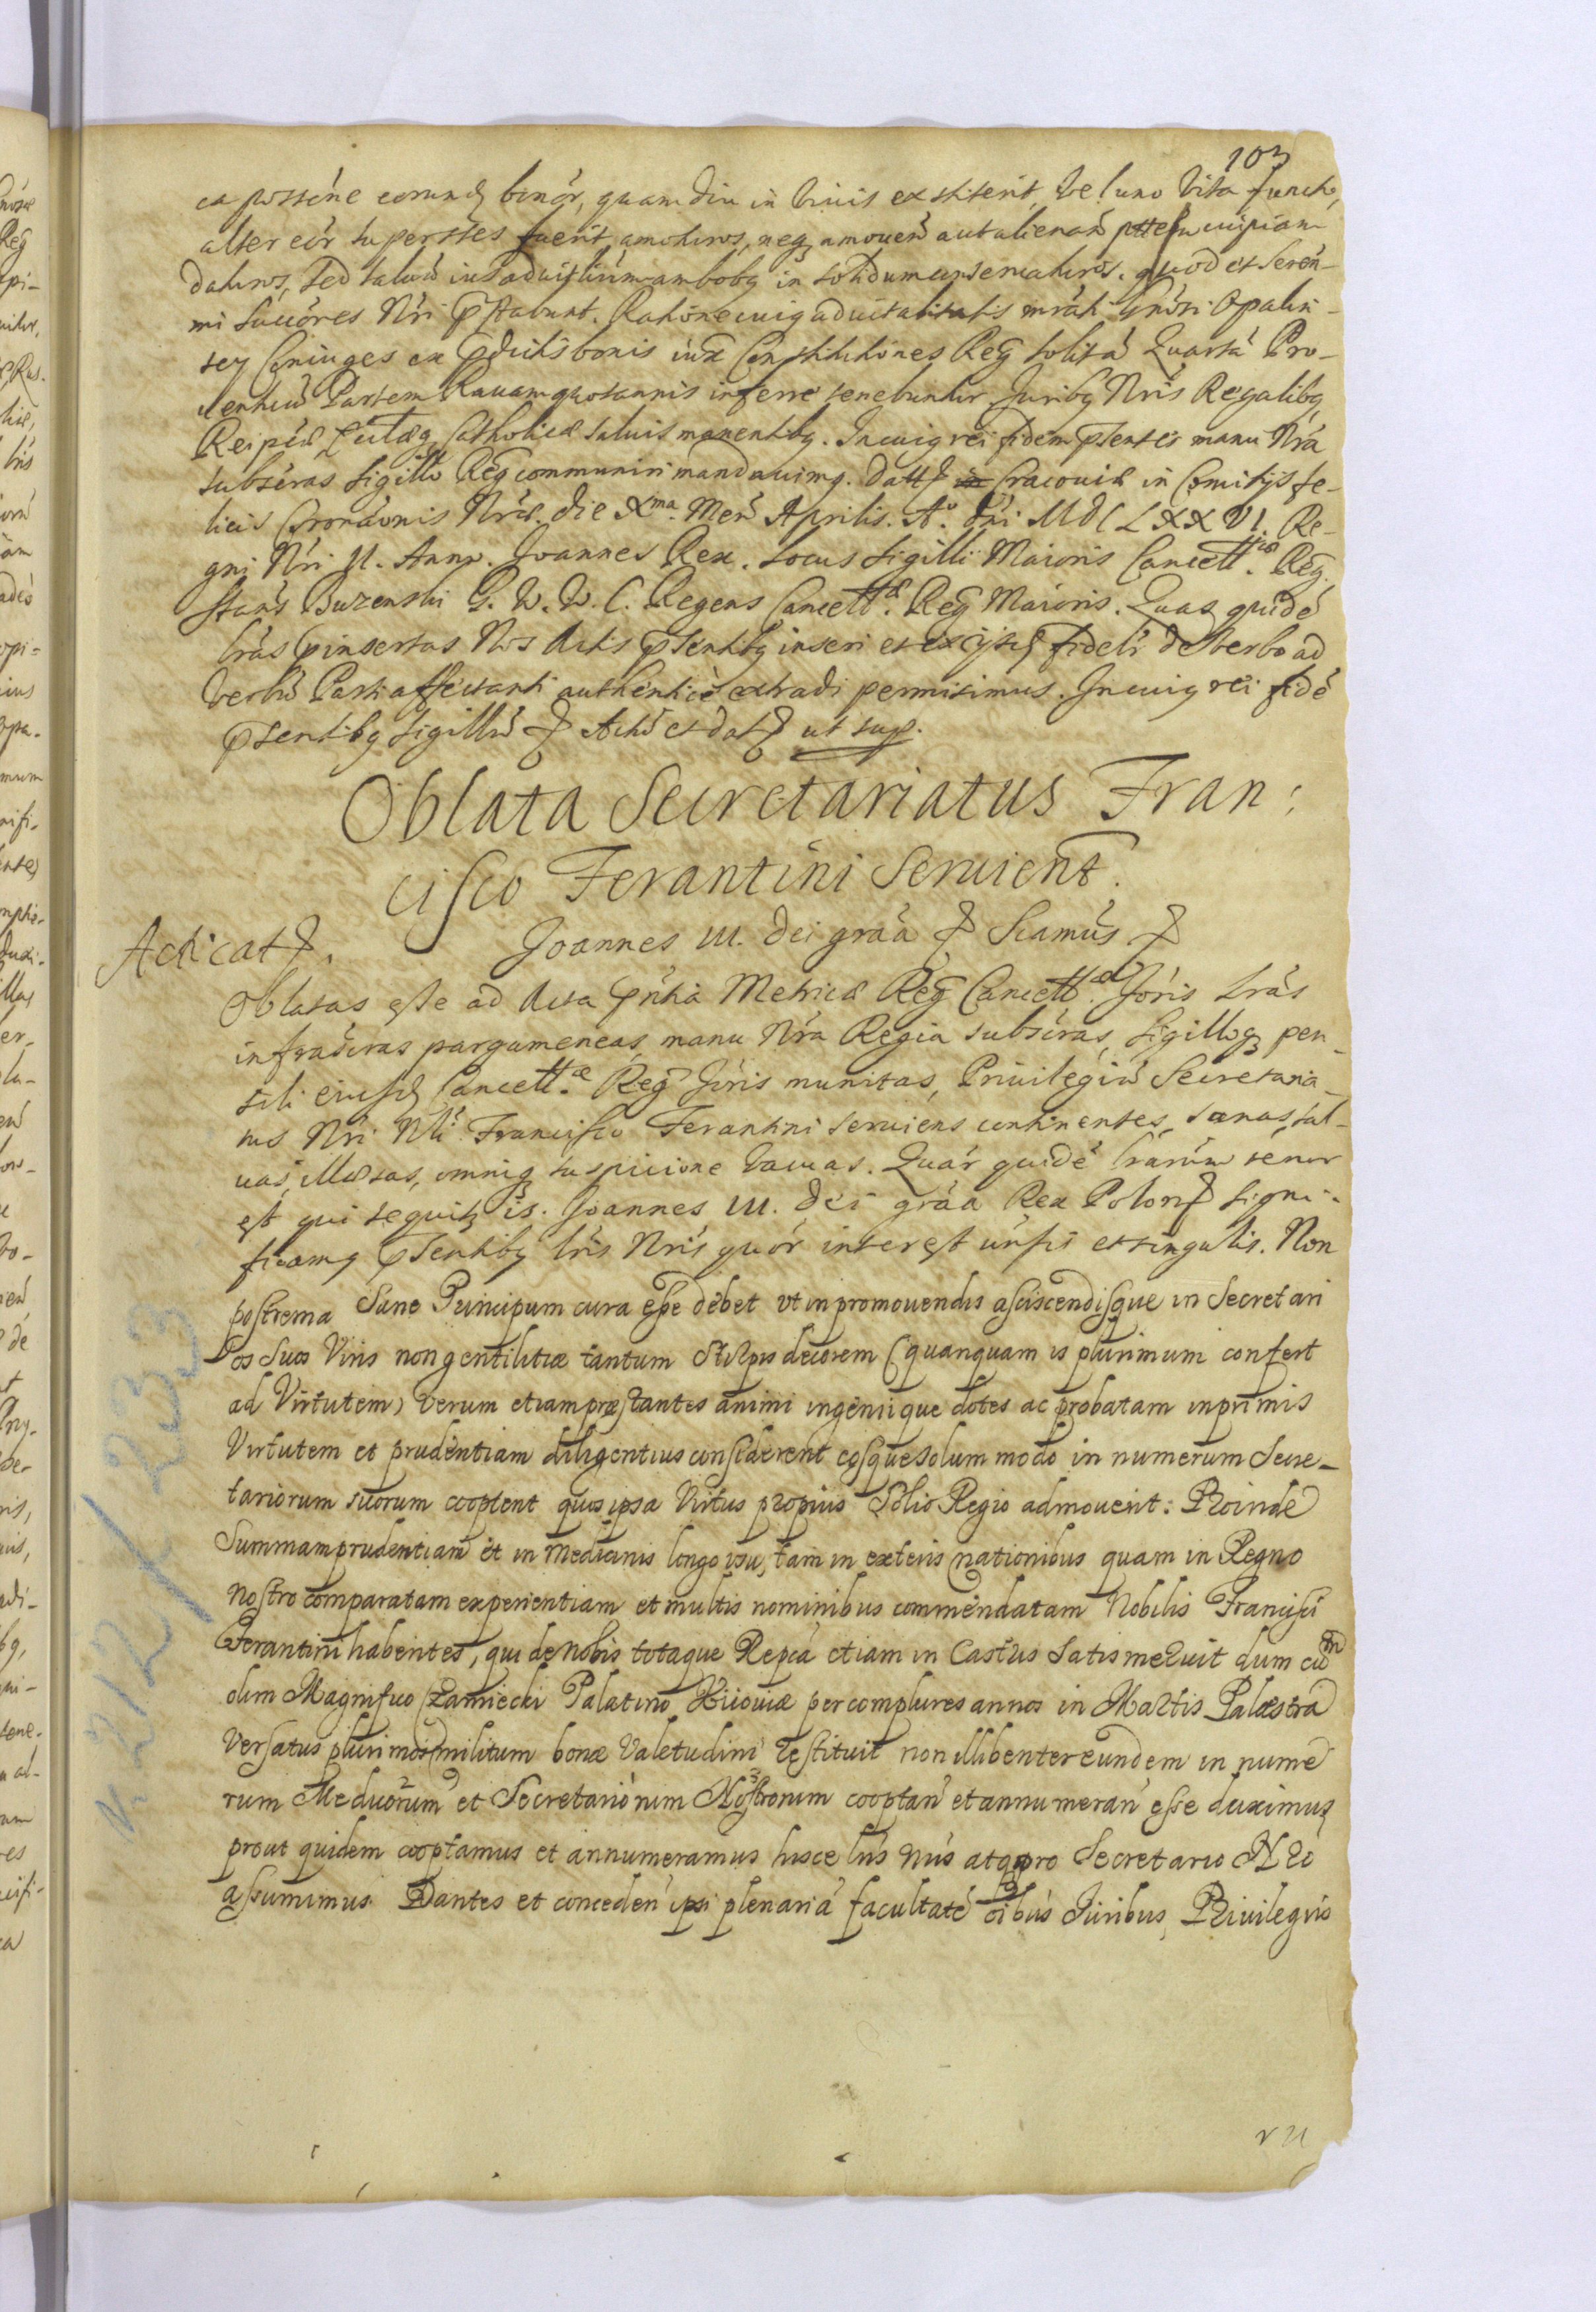 103
ea possióne eorund. bonór, quamdiu in vivis exstiterit, vel uno vita functo,
alter eór superstes fuerit amoturos, neq3 amovén aut alienań ptttem cuipiam
daturos, sed salvū ius advitliúm ambobq in solidum conservaturos. quod et Serén-
mi Succóres Nri pstabunt. Ratióne cuiq advitalitatis mráti Gnósi Opalin-
scy Coniuges ex pdictis bonis iuxa Constitutiónes Regni solitá Quartá Pro-
ventuū Partem Ravam quotannis inferre tenebuntur. Juribq Nris Regalibq
Reipcæ Ecclæq3 Catholicæ salvis manentibq. In cuiq rei fidem psentes manu Nrá
subscras sigillo Reg communiri mandavimq. Datt Cracoviæ in Comitijs fe-
licis Coronaónis Nræ die Xma. Men Aprilis. Ao. Dni MDCLXXVI. Re-
gni Nri II. Anno. Joannes Rex. Locus Sigilli Maioris Cancellriæ. Reg.
Stans Buzenski G. D. W. C. Regens Cancellæ. Reg Maioris. Quas quidé
lras pinsertas Nos Actis psentibq inseri et ex ijsd fideli de verbo ad
verbū Parti affectanti authenticè extradi permisimus. In cuiq rei fidé
psentibq sigillū Actū et dat ut sup.
Oblata Secretariatus Fran:
cisco Ferantini Servient.
Acticat.
Joannes III. Dei gráa Sciamús
Oblatas esse ad Acta pntia Metricæ Reg Cancellæ. Joris lrás
infrascras pargameneas, manu Nrá Regia subscras, Sigilloq3 pen-
sili eiusd Cancellæ. Reg Joris munitas, Privilegiū Secretaria-
tus Nri Nli Francisco Ferantini serviens continentes, sanas, sal-
vas, illæsas, omniq3 suspicione vacuas. Quár quidé lrarúm ténor
est qui sequitr is. Joannes III. Dei gráa Rex Polon Signi-
ficamq psentibq lris Nris quór interest únsis et singulis. Non
postrema Sane Principum cura esse debet ut in promovendis asciscendisque in Secretari
os Suos Viris non gentilitiæ tantum Stirpis decorem (quanquam is plurimum confert
ad Virtutem) verum etiam præstantes animi ingeniique dotes ac probatam inprimis
Virtutem et prudentiam diligentius considerent eosque solum modo in numerum Secre-
tariorum suorum cooptent quos ipsa Virtus propius Solio Regio admoverit: Proinde
Summam prudentiam et in Medicinis longo usu, tam in exteris nationibus quam in Regno
nostro comparatam experientiam et multis nominibus commendatam Nobilis Francisci
Ferantini habentes, qui de Nobis totaque Repca etiam in Castris Satis meruit dum cū
olim Magnifico Czarniecki Palatino Kiioviæ per complures annos in Martis Palæstra
Versatus plurimos militum bonæ Valetudini restituit non illibenter eundem in nume
rum Medicorum et Secretariorum Nostrorum cooptan et annumeran esse duximus
prout quidem cooptamus et annumeramus hisce lris nris atq3 pro Secretario Nro
assumimus. Dantes et conceden ipsi plenariá facultaté oibus Juribus, Privilegiis